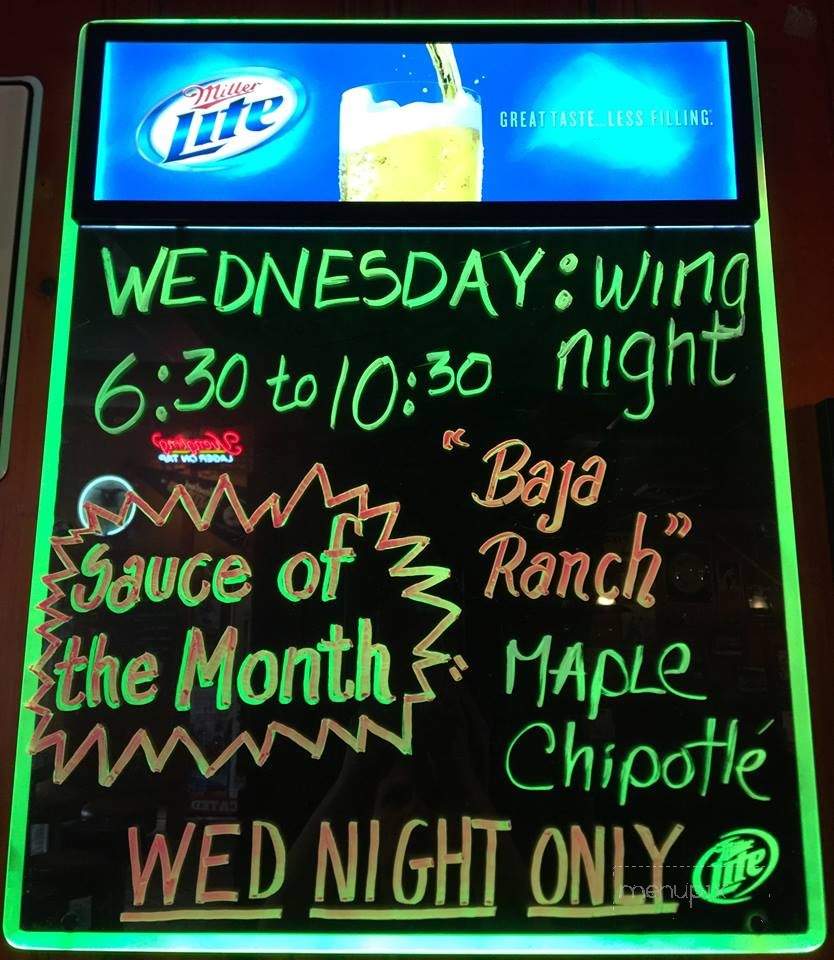 Miller
Lite
GREAT TASTE...LESS FILLING.
WEDNESDAY: wing
night
6:30 to 10:30
Yuengling
LAGER ON TAP
"Baja
Ranch"
Sauce of
the Month:
MAPLE
Chipotlé
WED NIGHT ONLY
Lite
menupix